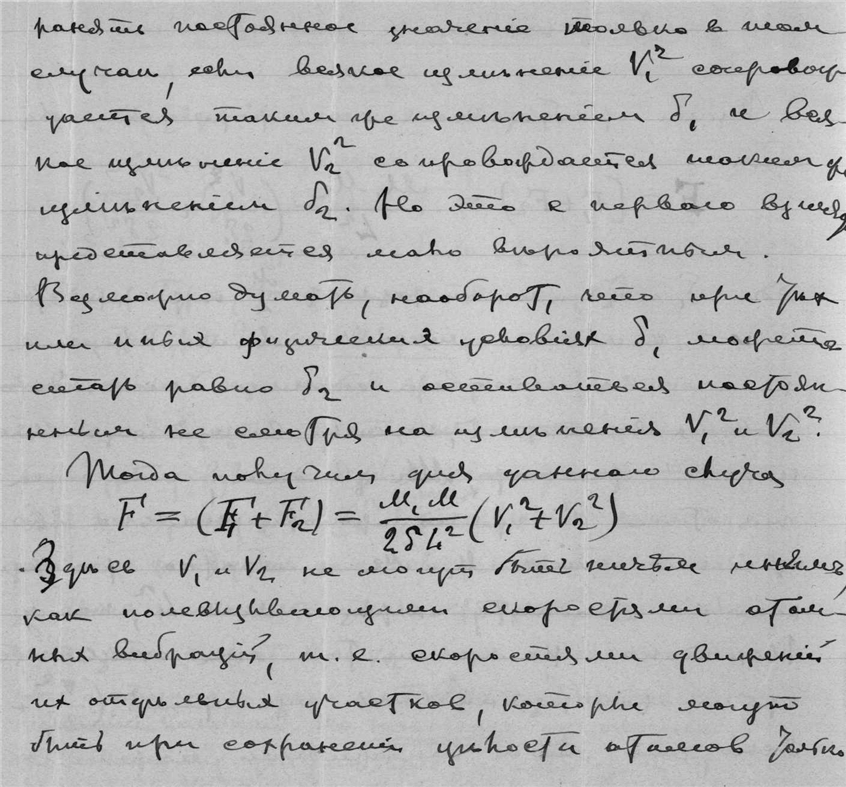 ранять постоянное значеніе только в том
случаи, если всякое измѣненіе V₁² сопровож
дается таким же измѣненіем δ₁ и вся
кое измѣненіе V₂² сопровождается таким же
измѣненіем δ₂. Но это с перваго взгляда
представляется мало вѣроятным.
Возможно думать, наоборот, что при тѣх
или иных физических условіях δ₁ может
стать равно δ₂ и оставаться постоян
ным не смотря на измѣненія V₁² и V₂².
Тогда получим для даннаго случая
F = (F₁ + F₂) = M₁M / 2δL² (V₁² + V₂²)
Здѣсь V₁ и V₂ не могут быть ничѣм иным,
как скоростями атом
ных вибрацій, т. е. скоростями движеній
их отдѣльных участков, которые могут
быть при сохраненіи цѣлости атомов только